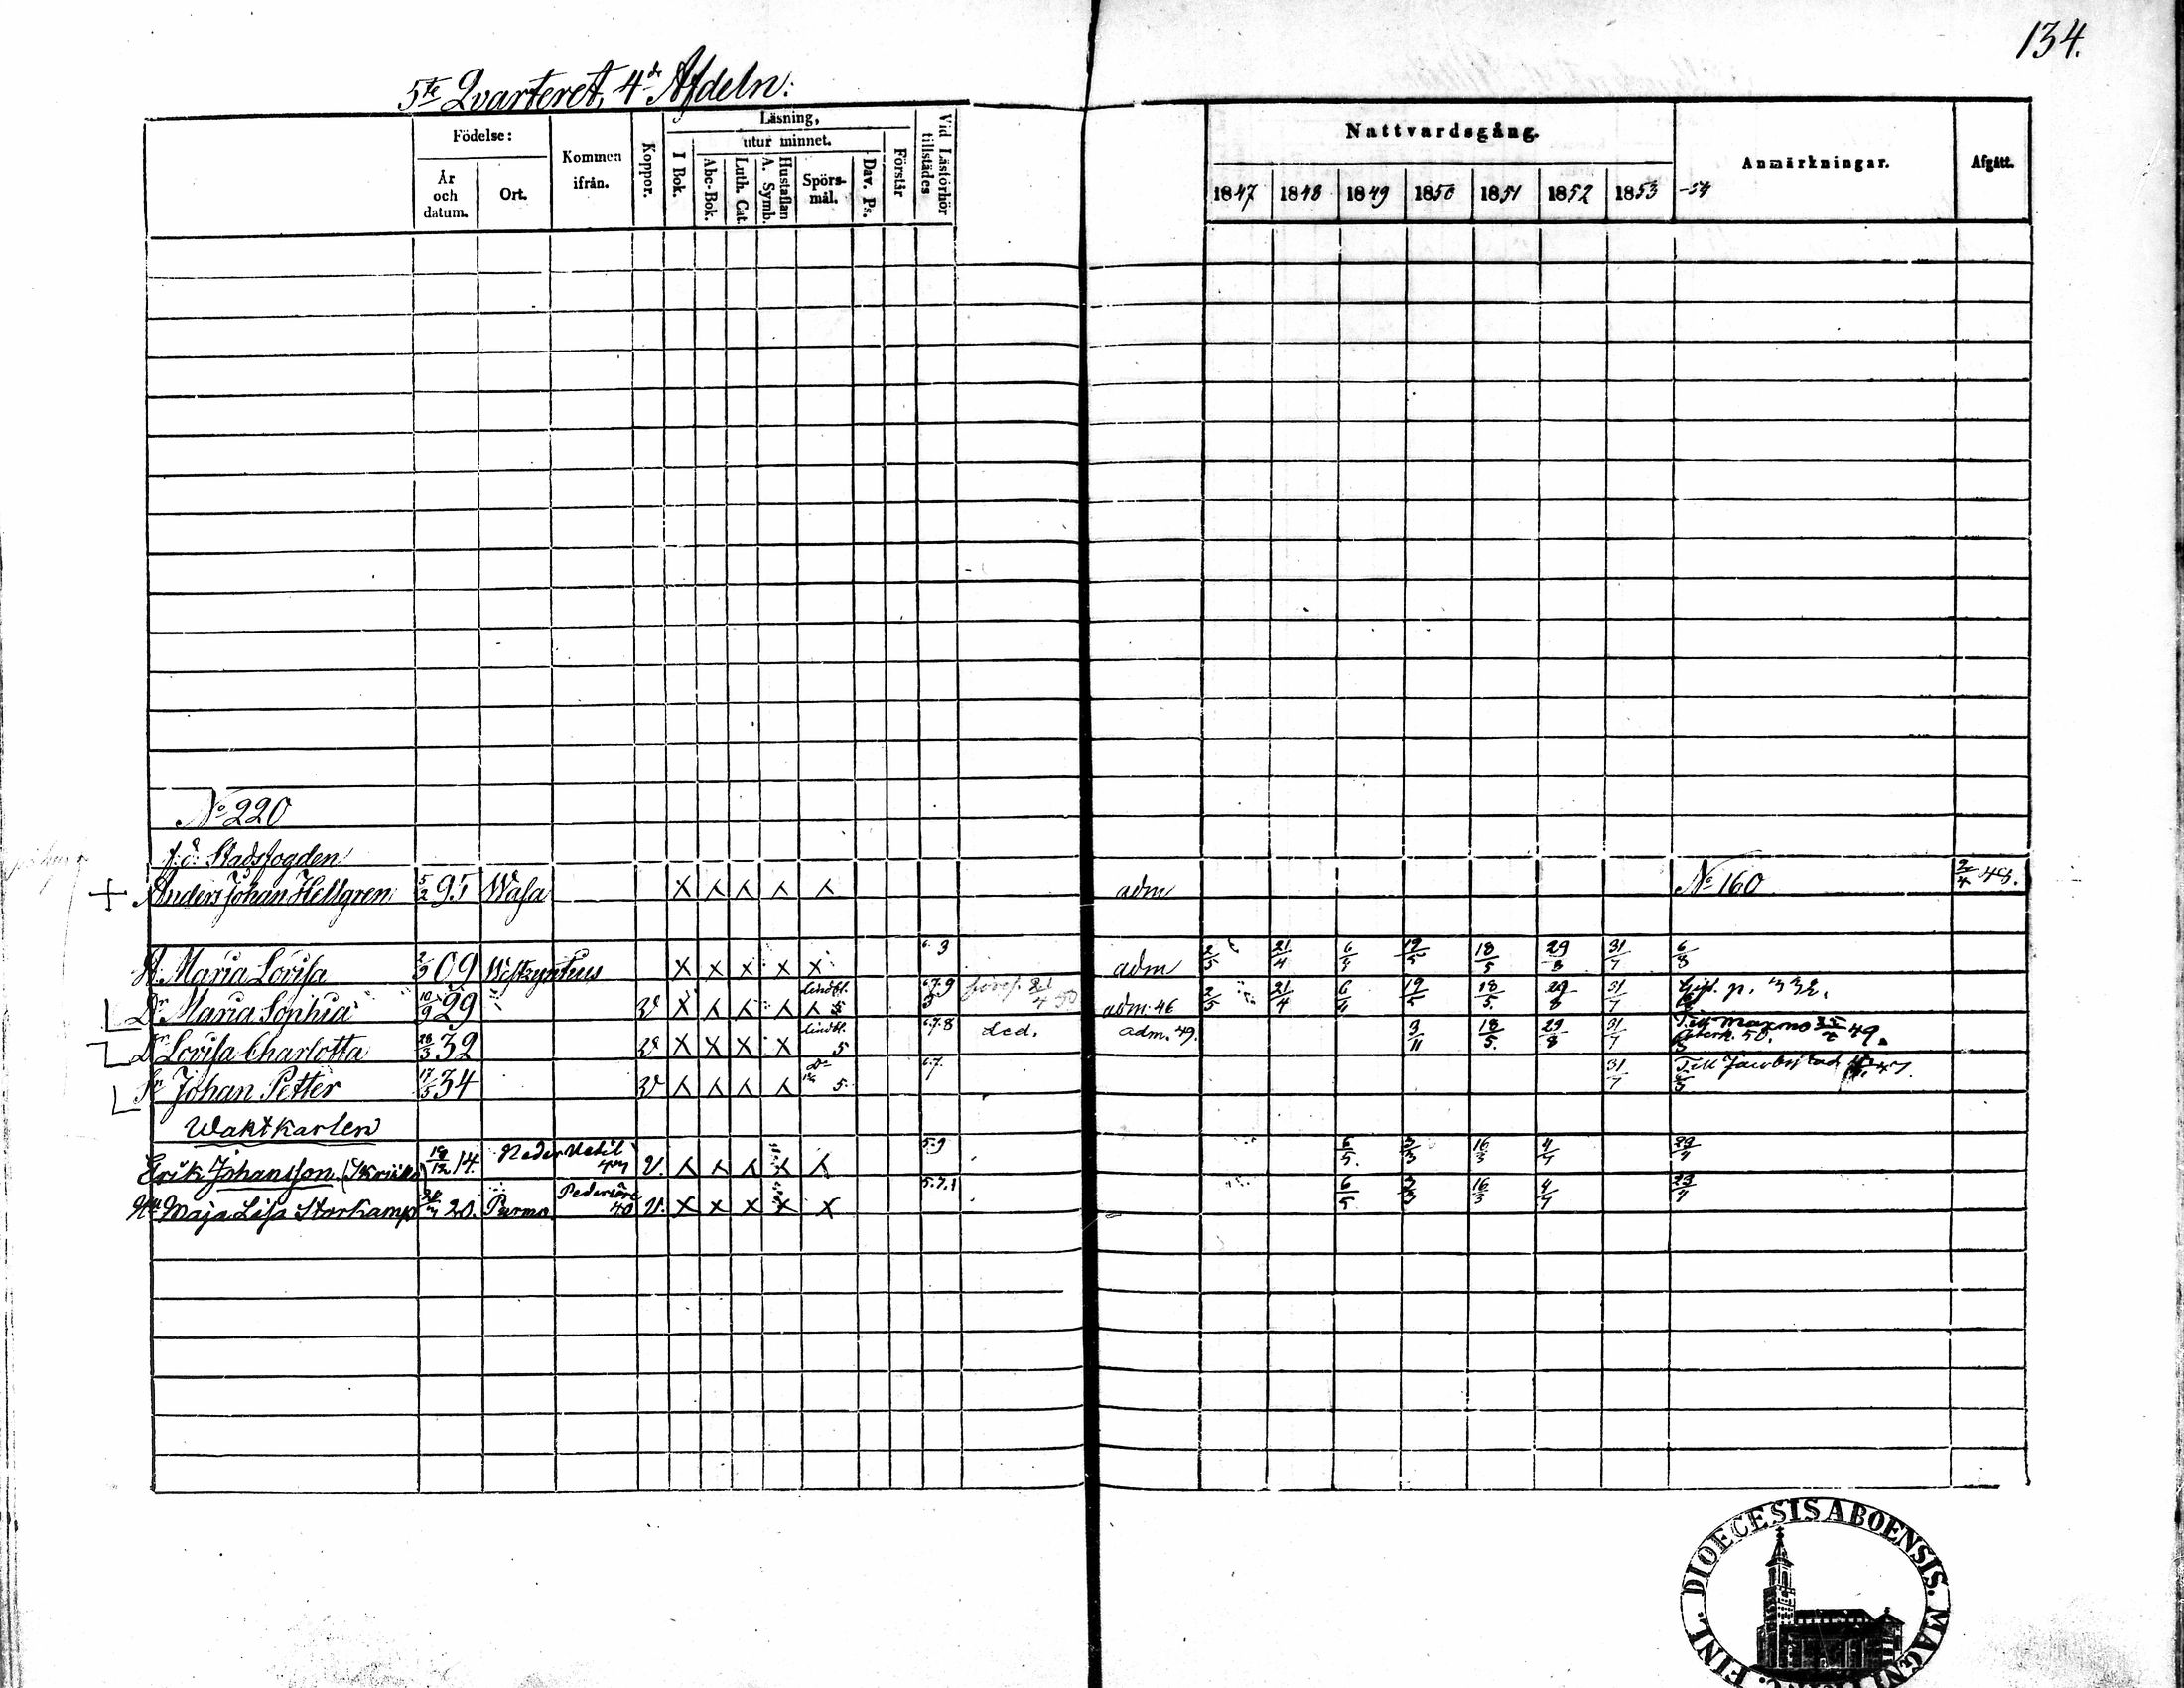 134.
5te Qvarteret, 4de Afdeln:
Födelse:
År och datum.
Ort.
Kommen ifrån.
Koppor.
Läsning,
I Bok.
utur minnet.
Abc-Bok.
Luth. Cat.
A. Symb.
Hustaflan
Spörs-mål.
Dav. Ps.
Förstår
Vid Läsförhör tillstädes
Nattvardsgång.
1847 1848 1849 1850 1851 1852 1853 -54
Anmärkningar.
Afgått.
No 220
f.d. Stadsfogden
+ Anders Johan Hellgren 5/2 95 Wasa X X X X X adm No 160 2/4 48.
H. Maria Lovisa 2/3 09 X X X X X 6. 9 adm 2/5 21/4 6/5 19/5 18/5 29/8 31/7 6/8
Dr Maria Sophia 10/9 29 V X X X X X 5 6.7.9 adm. 46 2/5 21/4 6/4 19/5 18/5. 29/8 31/7 Gift. p. 332.
Dr Lovisa Charlotta 28/3 32 V X X X X 5 6.7.8 ded. adm. 49. 3/11 18/5. 29/8 31/7 Till Maxmo 25/2 49. Återk. 50.
Sn Johan Petter 17/5 34 V X X X X 5. 6.7. 31/7 Till Jacobstad 47.
Waktkarlen
Erik Johansson 18/12 14. Neder Vetil V. X X X X X 5.9 6/5. 3/3 16/3 4/7 29/7
Maja Lisa Storkamp 20. Purmo Pedersöre 40 V. X X X X X 6/5 3/3 16/3 4/7 29/7
DIOECESIS ABOENSIS. MAGNI FINL.